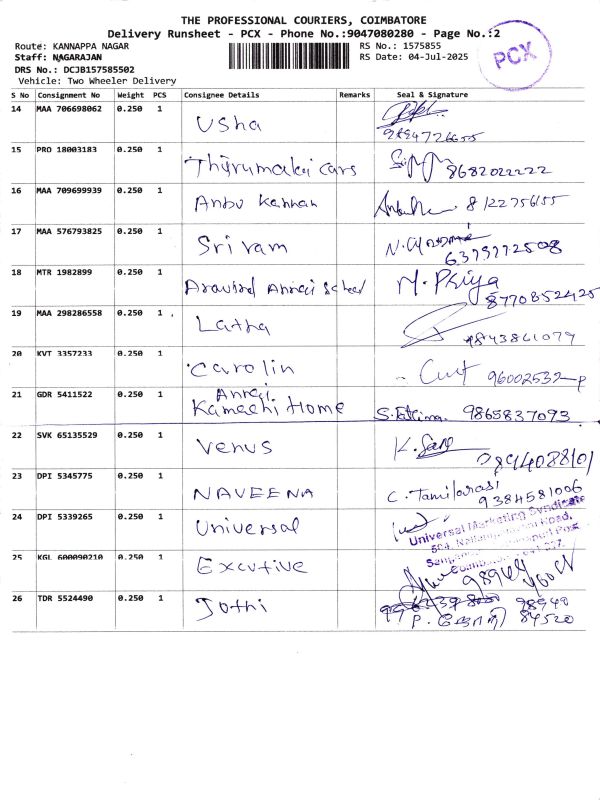 THE PROFESSIONAL COURIERS, COIMBATORE
Delivery Runsheet - PCX - Phone No.:9047080280 - Page No.:2
Route: KANNAPPA NAGAR
Staff: NAGARAJAN
DRS No.: DCJB157585502
Vehicle: Two Wheeler Delivery
RS No.: 1575855
RS Date: 04-Jul-2025
PCX
S No Consignment No Weight PCS Consignee Details Remarks Seal & Signature
14 MAA 706698062 0.250 1 Usha
9894726655
15 PRO 18003183 0.250 1 Thirumalai cars 8682022222
16 MAA 709699939 0.250 1 Anbu Kannan 8122756155
17 MAA 576793825 0.250 1 Sriram
6379772508
18 MTR 1982899 0.250 1 Aravind Annaji School M. Priya
8770852425
19 MAA 298286558 0.250 1 Latha 9843861079
20 KVT 3357233 0.250 1 Carolin
21 GDR 5411522 0.250 1 Annaji
Kamachi Home S. Fathima 9865837093
22 SVK 65135529 0.250 1 Venus K.
9894088101
23 DPI 5345775 0.250 1 NAVEENA C. Tamilarasi
9384581006
24 DPI 5339265 0.250 1 Universal
Universal Marketing Syndicate
25 KGL 600090210 0.250 1 Excutive
26 TDR 5524490 0.250 1 Jothi 98940
84520